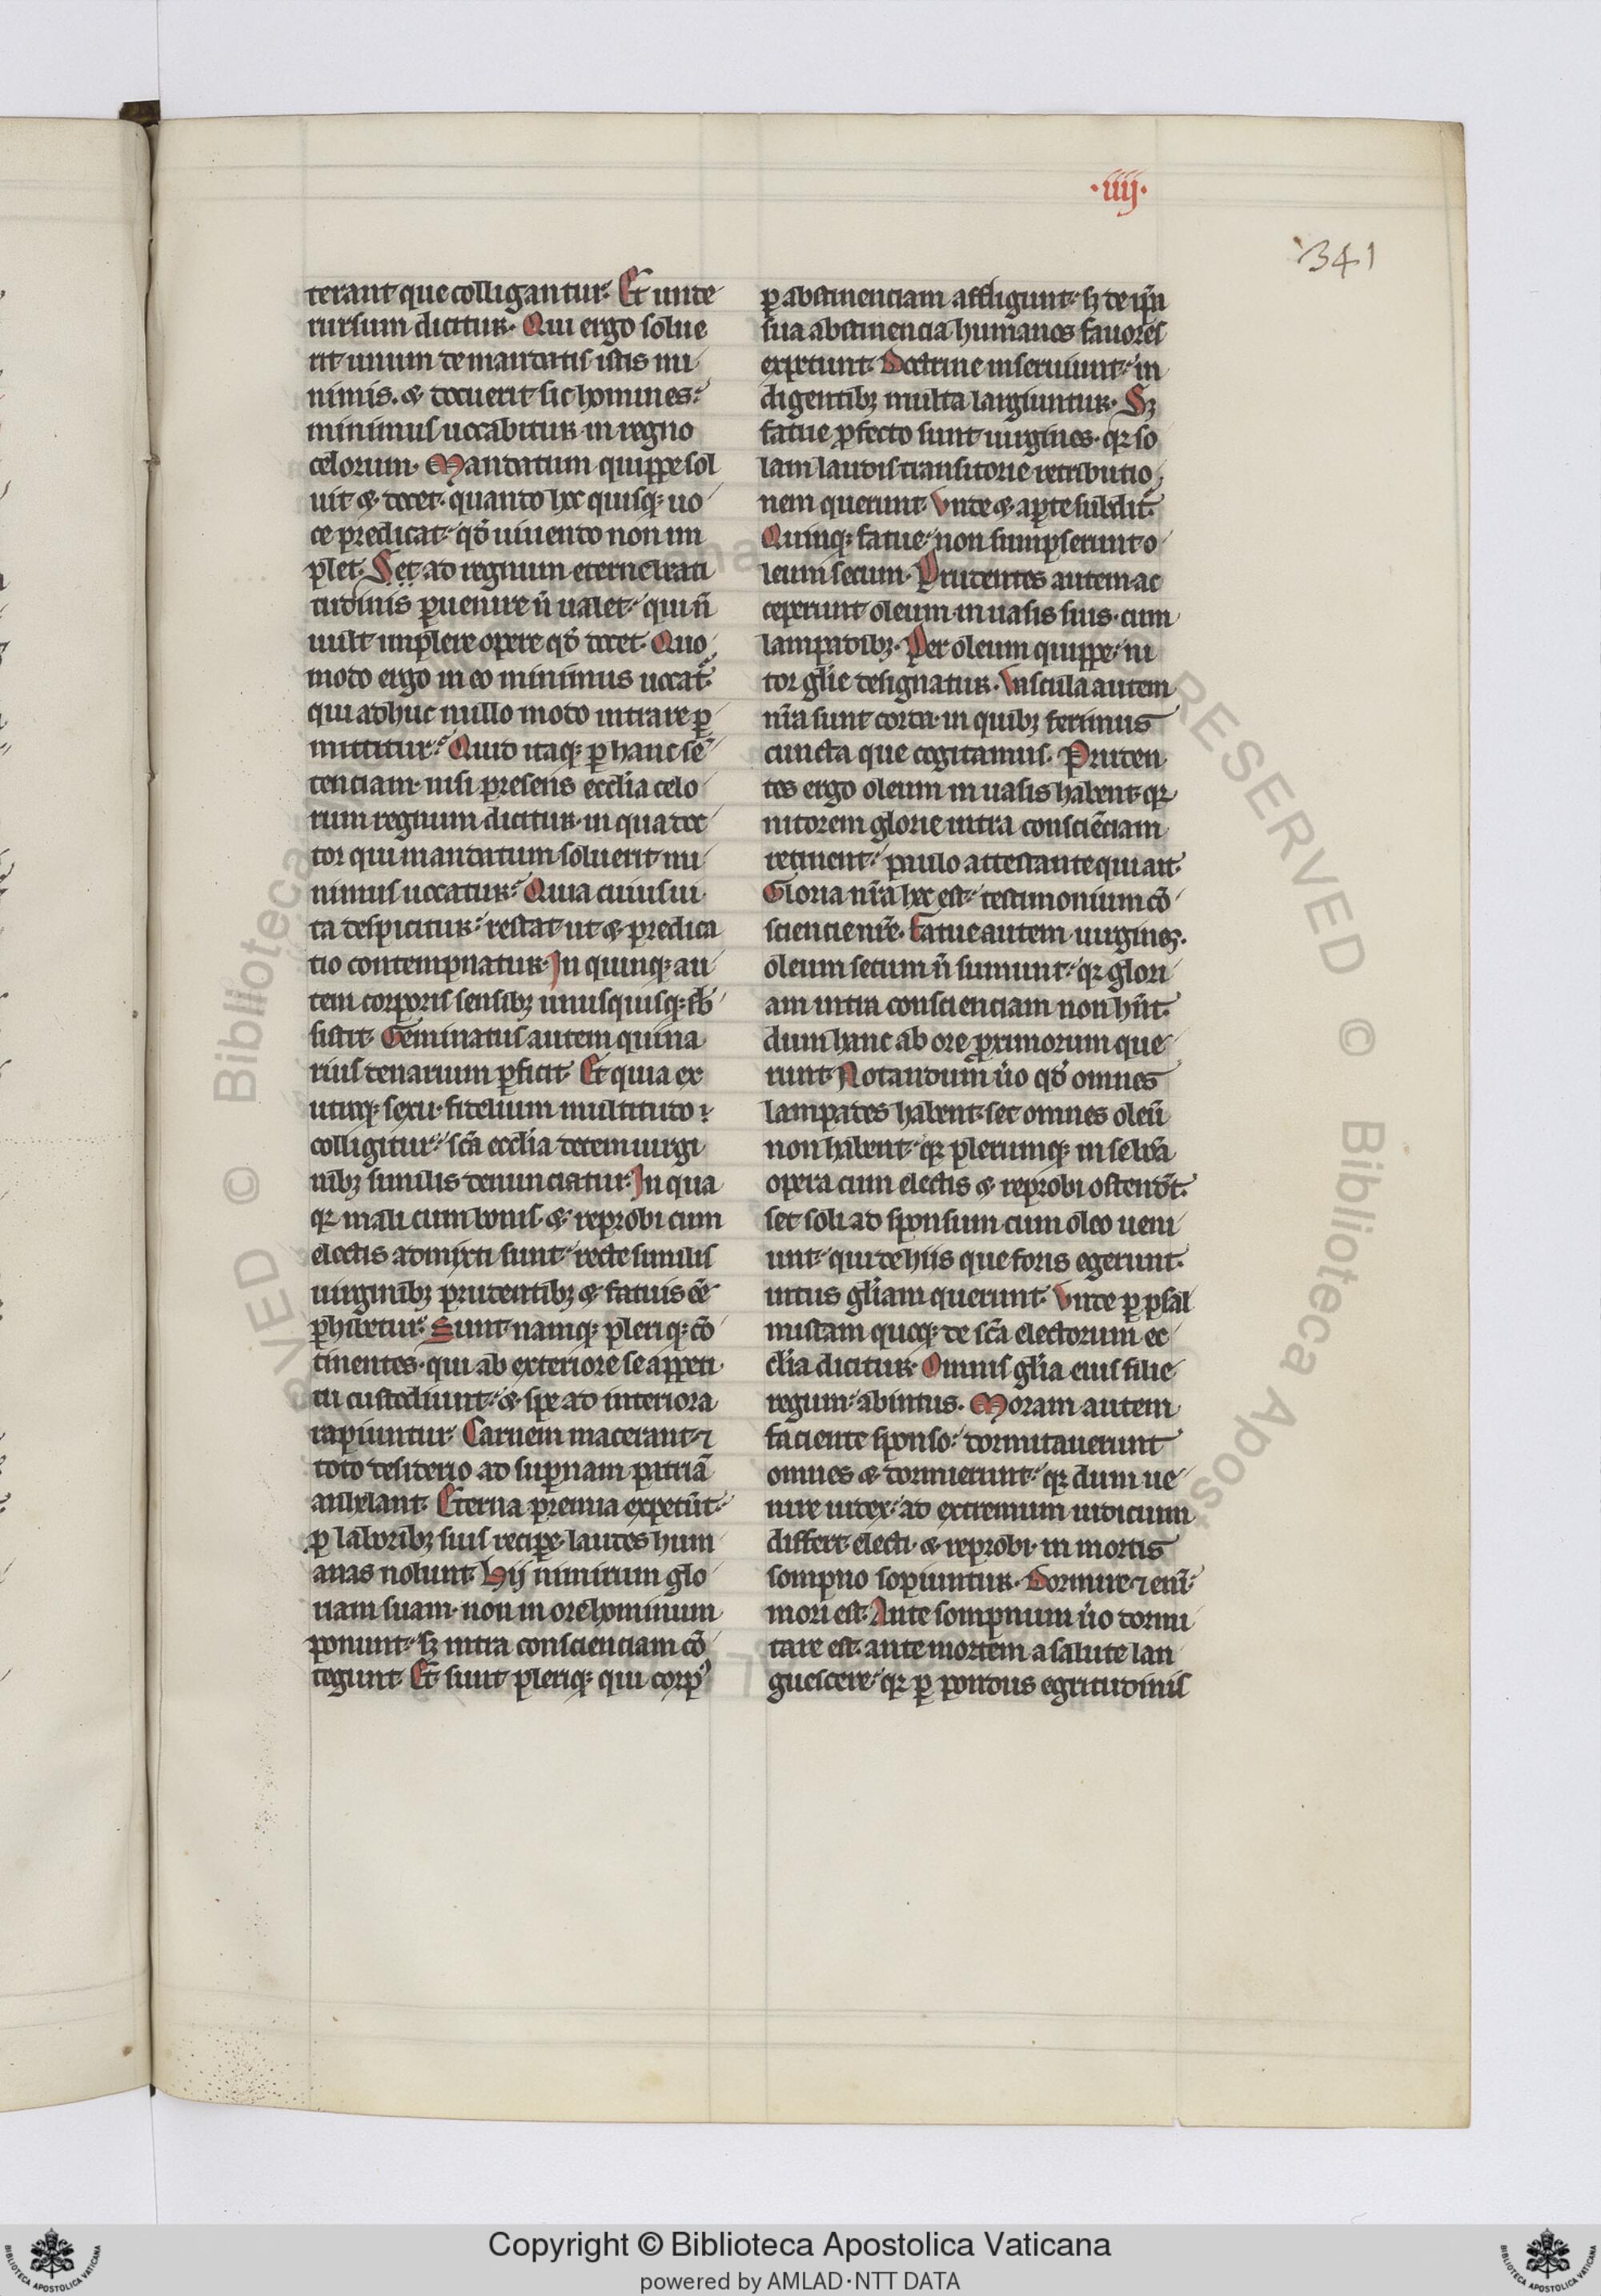 ·iiij·
341
terant que colligantur. Et unde
rursum dicitur. Qui ergo solue
rit unum de mandatis istis mi
nimis. & docuerit sic homines:
minimus uocabitur in regno
celorum. Mandatum quippe sol
uit & docet. quando hoc quisq; uo
ce predicat. qđ uiuendo non im
plet. Set ad regnum eterne beati
tudinis ꝑuenire ñ ualet. qui ñ
uult implere opere qđ docet. Quo
modo ergo in eo minimus uocat̃.
qui adhuc nullo modo intrare ꝑ
mittitur. Quid itaq; ꝑ hanc sẽ
tenciam. nisi presens ecc̃lia celo
rum regnum dicitur. in qua doc
tor qui mandatum soluerit mi
nimus uocatur. Quia cuius ui
ta despicitur. restat ut & predica
tio contempnatur. In quinq; au
tem corporis sensibꝫ unusquisq; sb̃
sistit. Geminatus autem quina
rius denarium ꝑficit. Et quia ex
utroq; sexu. fidelium multitudo
colligitur. sc̃a ecc̃lia decem uirgi
nibꝫ similis denunciatur. In qua
qr mali cum bonis. & reprobi cum
electis admixti sunt. recte similis
uirginibꝫ prudentibꝫ & fatuis eẽ
ꝑhibetur. Sunt namq; pleriq; cõ
tinentes. qui ab exteriore se appeti
tu custodiunt. & spe ad interiora
rapiuntur. Carnem macerant. ⁊
toto desiderio ad suꝑnam patriã
anhelant. Eterna premia expetũt.
ꝓ laboribꝫ suis reciꝑe laudes hum
anas nolunt. Hij nimirum glo
riam suam. non in ore hominum
ponunt. sꝫ intra conscienciam cõ
tegunt. Et sunt pleriq; qui corpꝰ
ꝑ abstinenciam affligunt. sꝫ de ip̃a
sua abstinencia humanos fauores
expetunt. Doctrine inseruiunt. in
digentibꝫ multa largiuntur. Sꝫ
fatue ꝓfecto sunt uirgines. qr so
lam laudis transitorie retributio
nem querunt. Vnde & aꝑte subdit̃.
Quinq; fatue. non sumpserunt o
leum secum. Prudentes autem ac
ceperunt oleum in uasis suis. cum
lampadibꝫ. Per oleum quippe. ni
tor gl̃ie designatur. Vascula autem
nr̃a sunt corda. in quibꝫ ferimus
cuncta que cogitamus. Pruden
tes ergo oleum in uasis habent. qr
nitorem glorie intra consciẽciam
retinent. paulo attestante qui ait.
Gloria nr̃a hec est. testimonium cõ
sciencie nr̃e. Fatue autem uirgines.
oleum secum ñ sumunt. qr glori
am intra conscienciam non hñt.
dum hanc ab ore ꝓximorum que
runt. Notandum ũo qđ omnes
lampades habent. set omnes oleũ
non habent. qr plerumq; in se bõa
opera cum electis & reprobi ostendũt.
set soli ad sponsum cum oleo ueni
unt. qui de hiis que foris egerunt.
intus gl̃iam querunt. Vnde ꝑ psal
mistam quoq; de sc̃a electorum ec
cl̃ia dicitur. Omnis gl̃ia eius filie
regum. ab intus. Moram autem
faciente sponso. dormitauerunt
omnes & dormierunt. qr dum ue
nire iudex. ad extremum iudicium
differt. electi. & reprobi. in mortis
sompno sopiuntur. Dormire ⁊ eni̅
mori est. Ante sompnum ũo dormi
tare est. ante mortem a salute lan
guescere. qr ꝑ pondus egritudinis
Copyright © Biblioteca Apostolica Vaticana
powered by AMLAD·NTT DATA